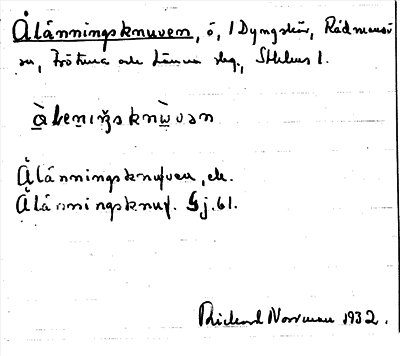 Ålänningsknuven, ö, i Dyngskär, Rådmansö
sn, Frötuna och Länna skg, Sthlms l.
Ålänningsknuven, ek.
Ålänningsknuf. Sj.61.
Rickard Norrman 1932.